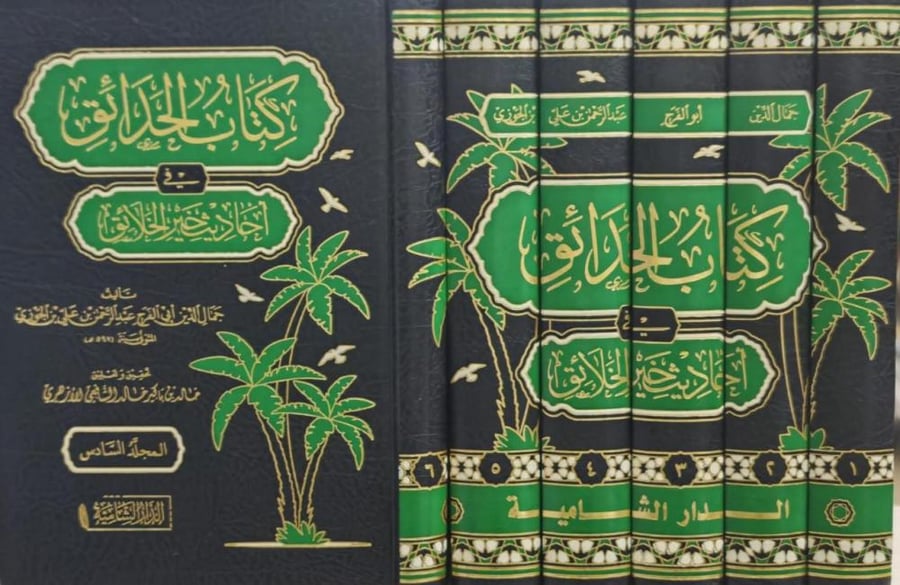 كتاب الحدائق
في
أحاديث خير الخلائق
تأليف
جمال الدين أبي الفرج عبد الرحمن بن علي بن الجوزي
المتوفى سنة (٥٩٧ هـ)
تحقيق وتعليق
خالد بن بكير خالد الشافعي الأزهري
المجلد السادس
الدار الشامية
جمال الدين أبو الفرج عبد الرحمن بن علي بن الجوزي
كتاب الحدائق
في
أحاديث خير الخلائق
١ ٢ ٣ ٤ ٥ ٦
الدار الشامية